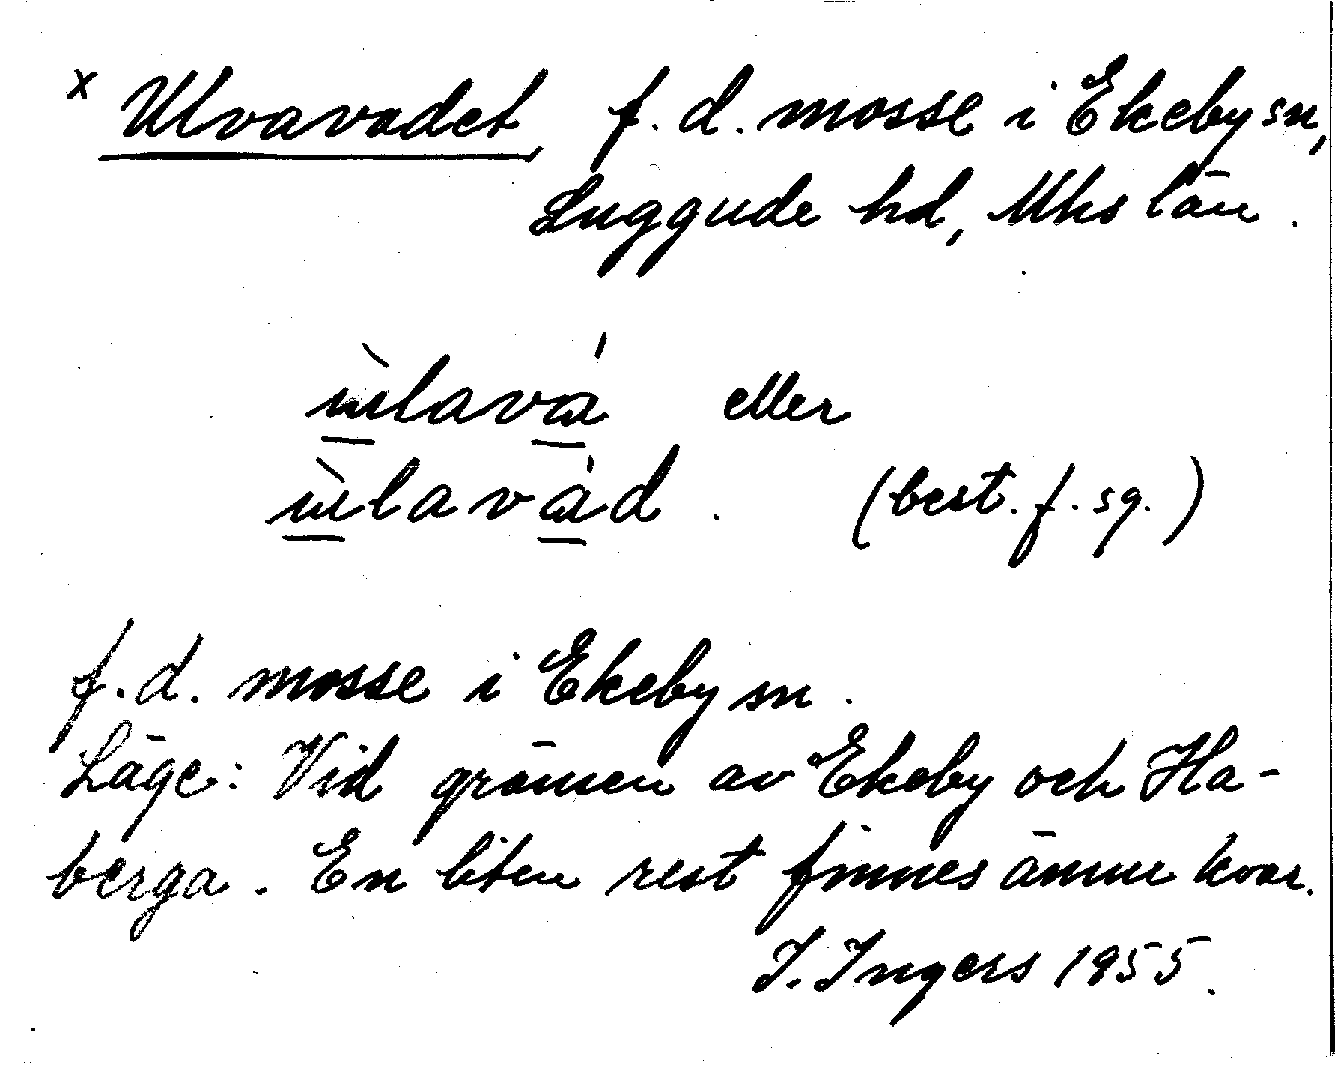 x Ulvavadet, f. d. mosse i Ekeby sn,
Luggude hd, Mhs län.
ùlavá eller
ùlavád. (best. f. sg.)
f. d. mosse i Ekeby sn.
Läge: Vid gränsen av Ekeby och Ha-
berga. En liten rest finnes ännu kvar.
I. Ingers 1955.